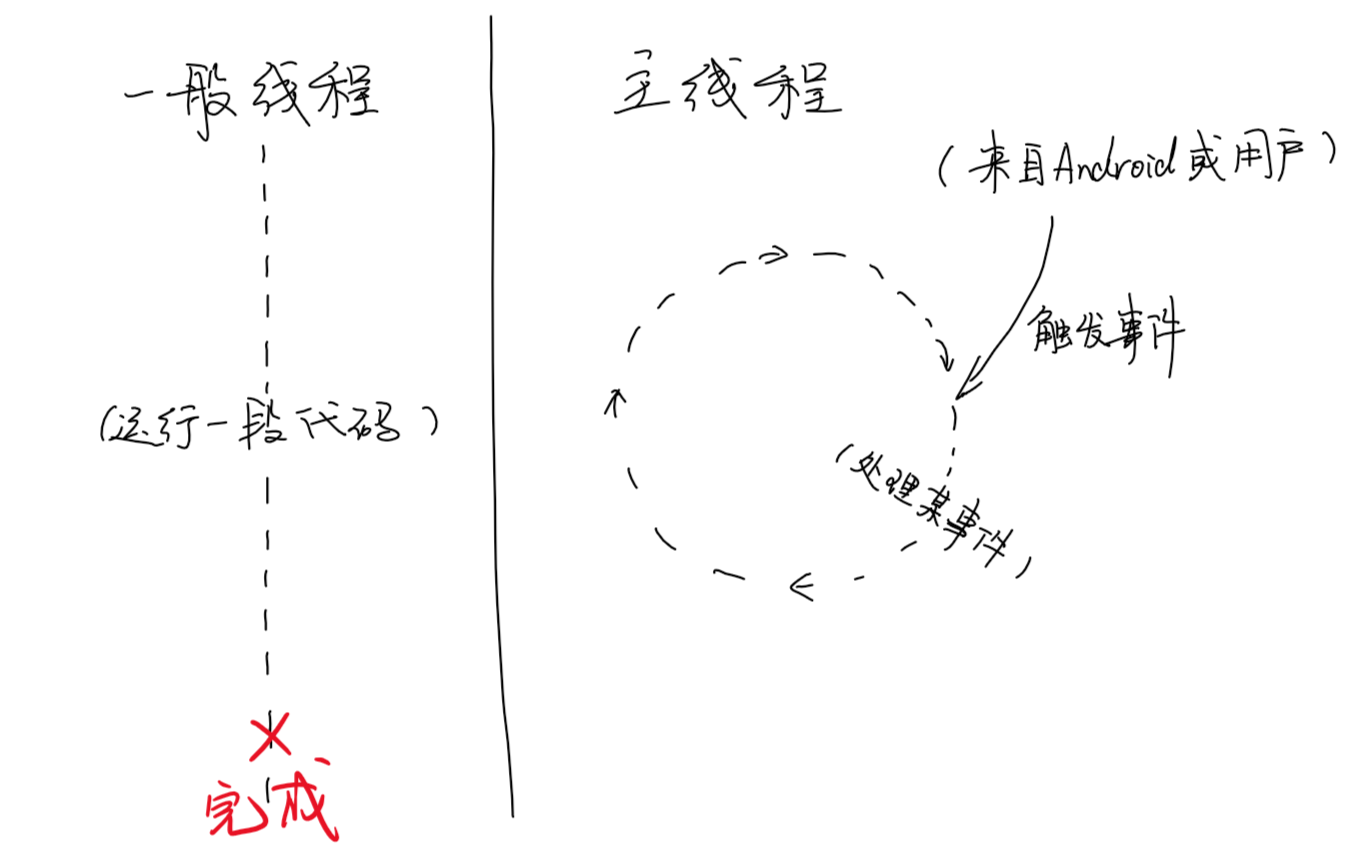 一般线程
(运行一段代码)
完成
主线程
(来自Android或用户)
触发事件
(处理某事件)